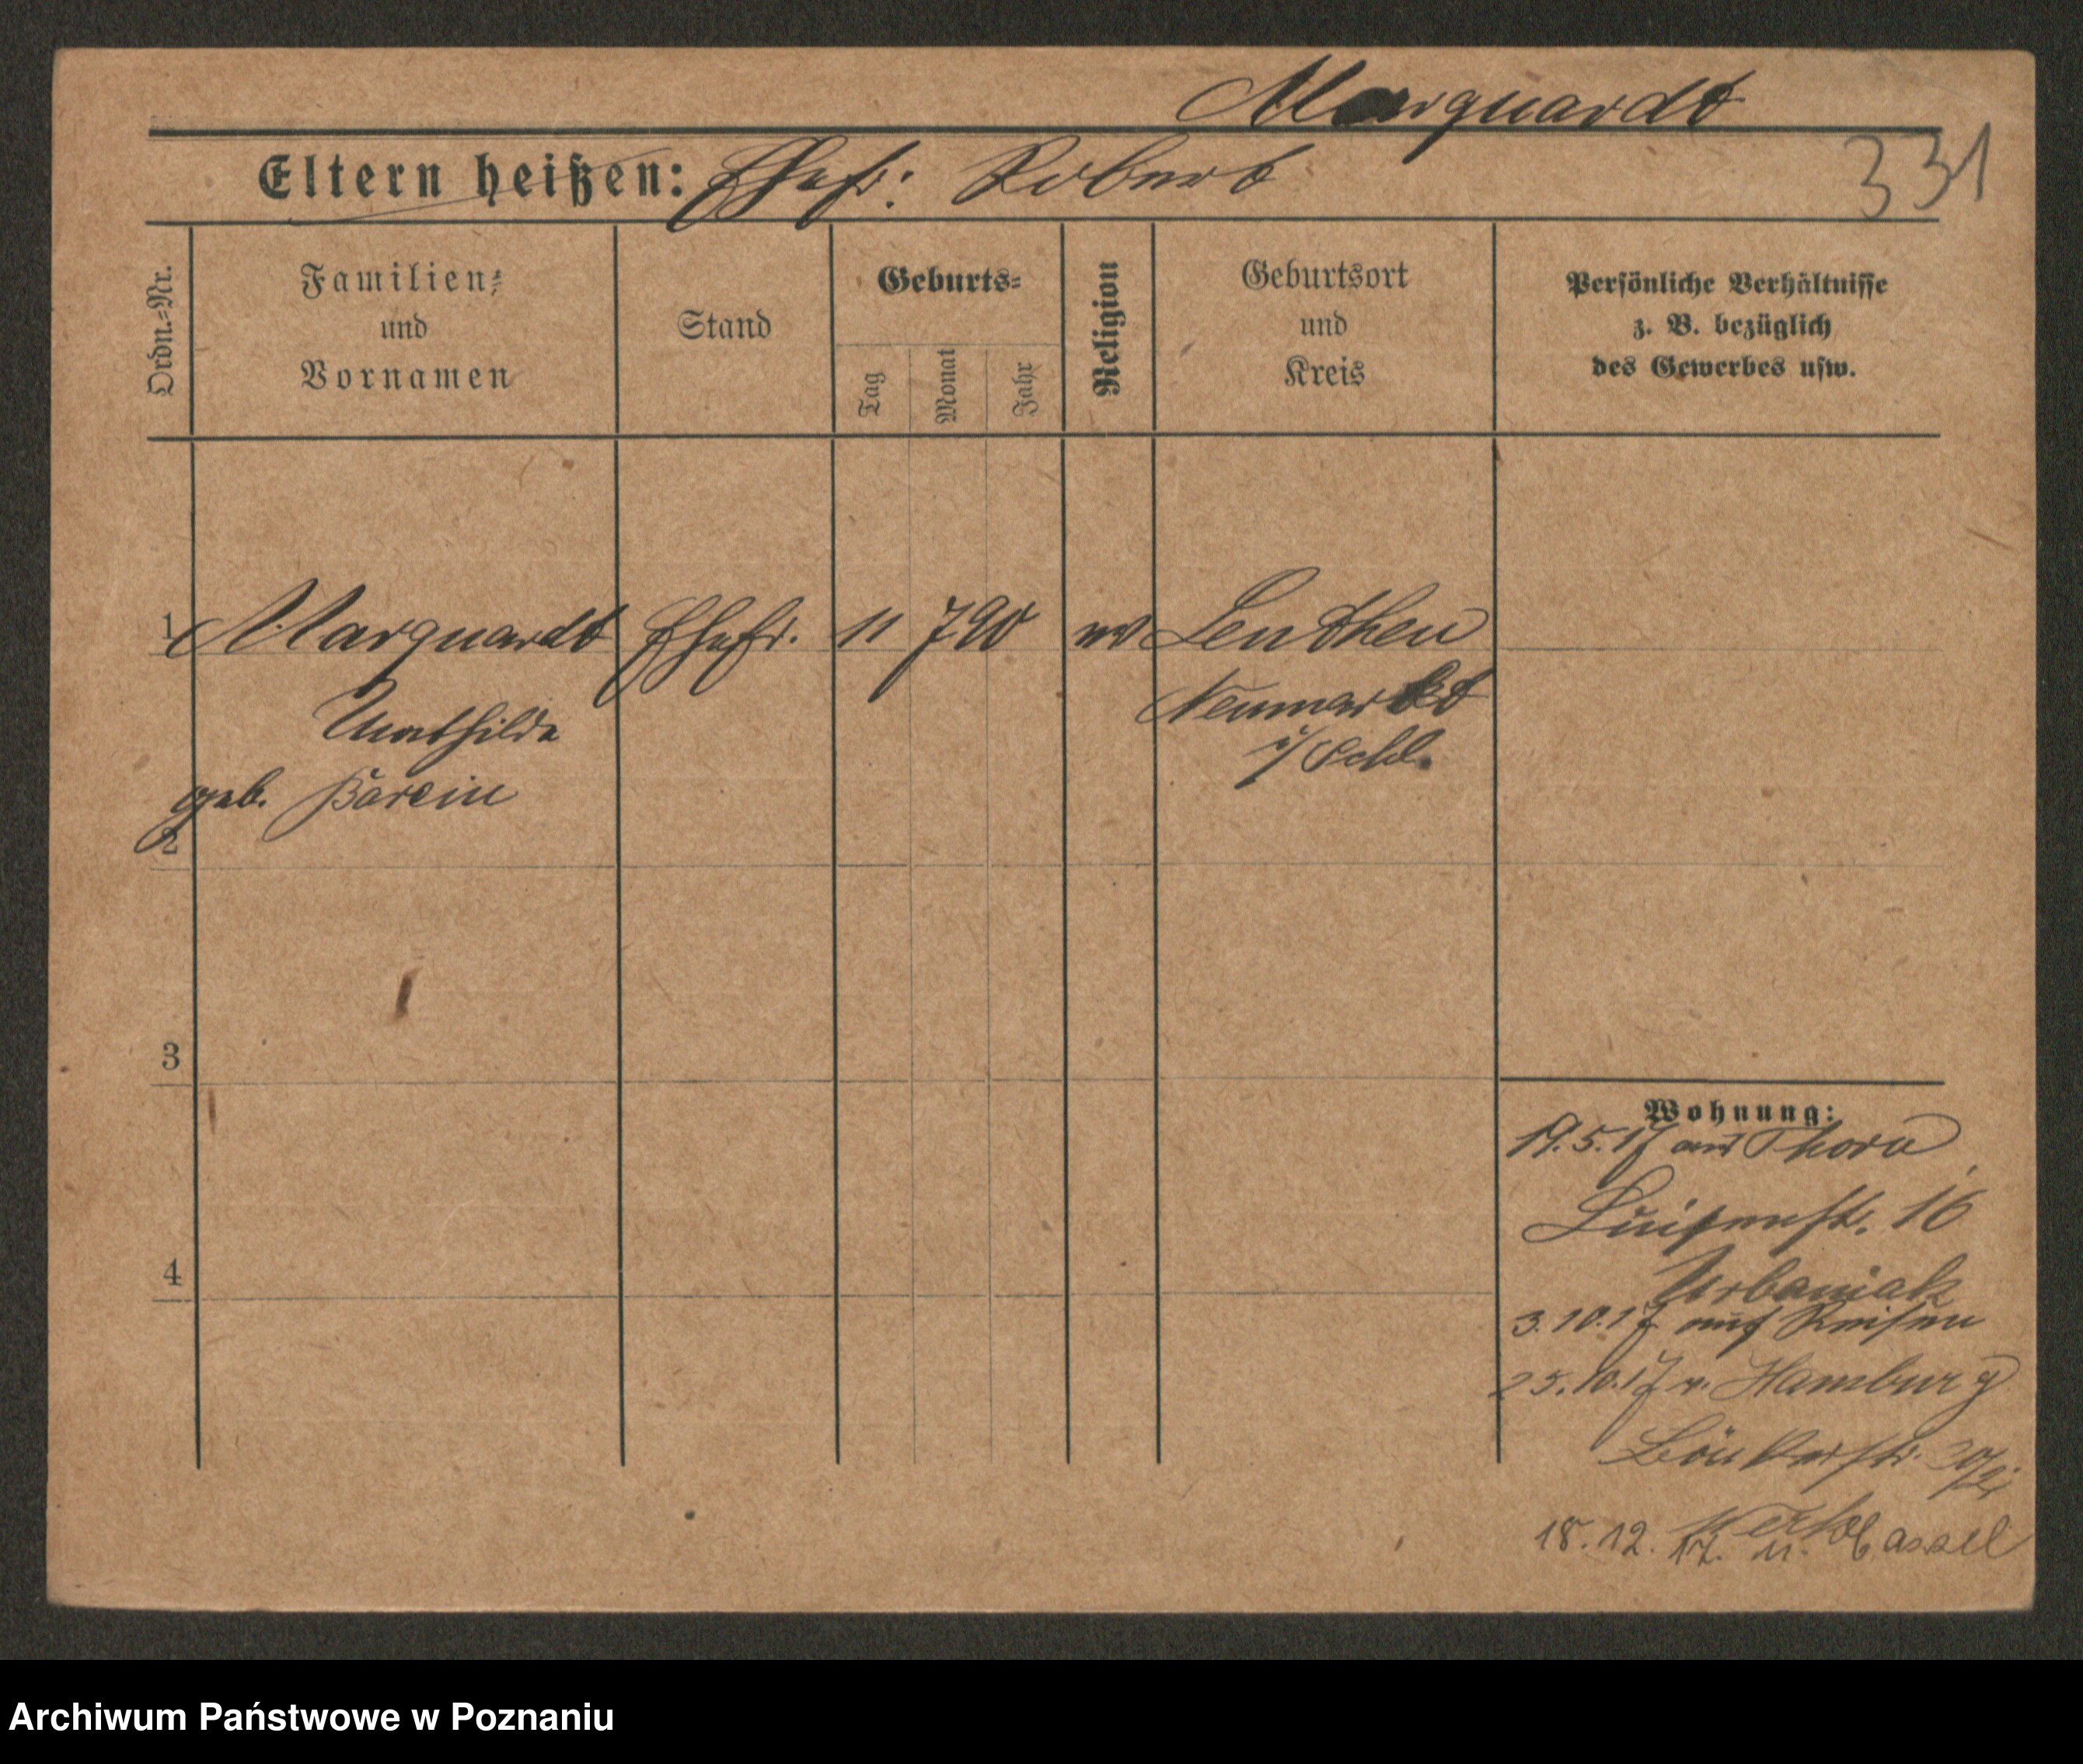 Marquardt
Eltern heißen: Ehefr: Robert
331
Ordn.-Nr.
Familien- und Vornamen
Stand
Geburts-
Tag Monat Jahr
Religion
Geburtsort und Kreis
Persönliche Verhältnisse
z. B. bezüglich
des Gewerbes usw.
1 Marquardt Ehefr. 11 7 90 ev Leuthen
Mathilde
Neumarkt
i/Schl.
geb. Barein
2
3
4
Wohnung:
19.5.17 aus Thorn
Luisenstr. 16
Urbaniak
3.10.17 auf Reisen
25.10.17 v. Hamburg
18.12. 17. n. Cassel
Archiwum Państwowe w Poznaniu